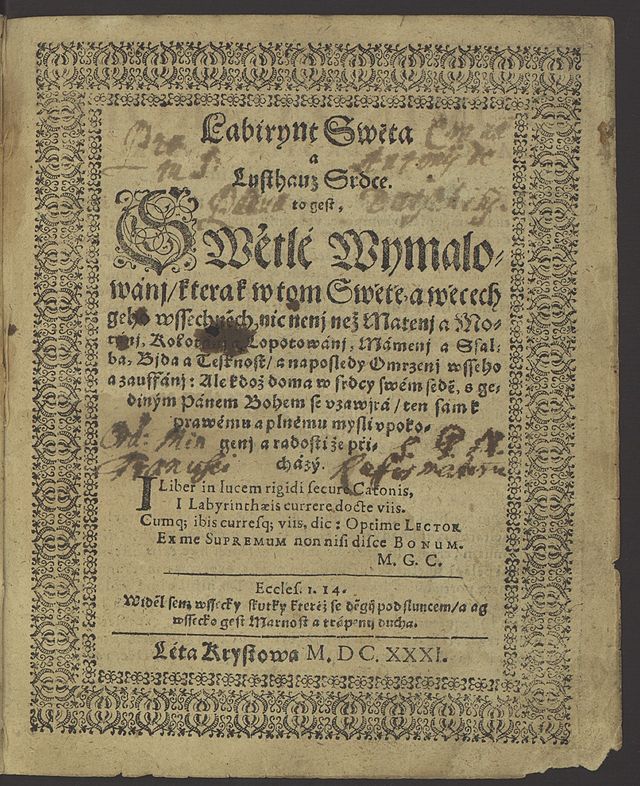 Labirynt Swěta
a
Lusthauz Srdce.
to gest,
SWětlé Wymalo-
wánj / kterak w tom Swěte. a wěcech
geho wssechněch, nic nenj než Matenj a Mo-
tánj, Kolotánj a Lopotowánj, Mámenj a Ssal-
ba, Bjda a Tesknost / a naposledy Omrzenj wsseho
a zauffánj: Ale kdož doma w srdcy swém sedě, s ge-
diným Pánem Bohem se vzawjrá / ten sam k
prawému a plnému mysli vpoko-
genj a radosti že při-
cházý.
I Liber in lucem rigidi secure Catonis,
I Labyrinthæis currere docte viis.
Cumq; ibis curresq; viis, dic: Optime LECTOR
Ex me SUPREMUM non nisi disce BONUM.
M. G. C.
Eccles. 1. 14.
Widěl sem wssecky skutky kteréž se děgij pod sluncem / a ag
wssecko gest Marnost a trápenij ducha.
Léta Krystowa M. DC. XXXI.